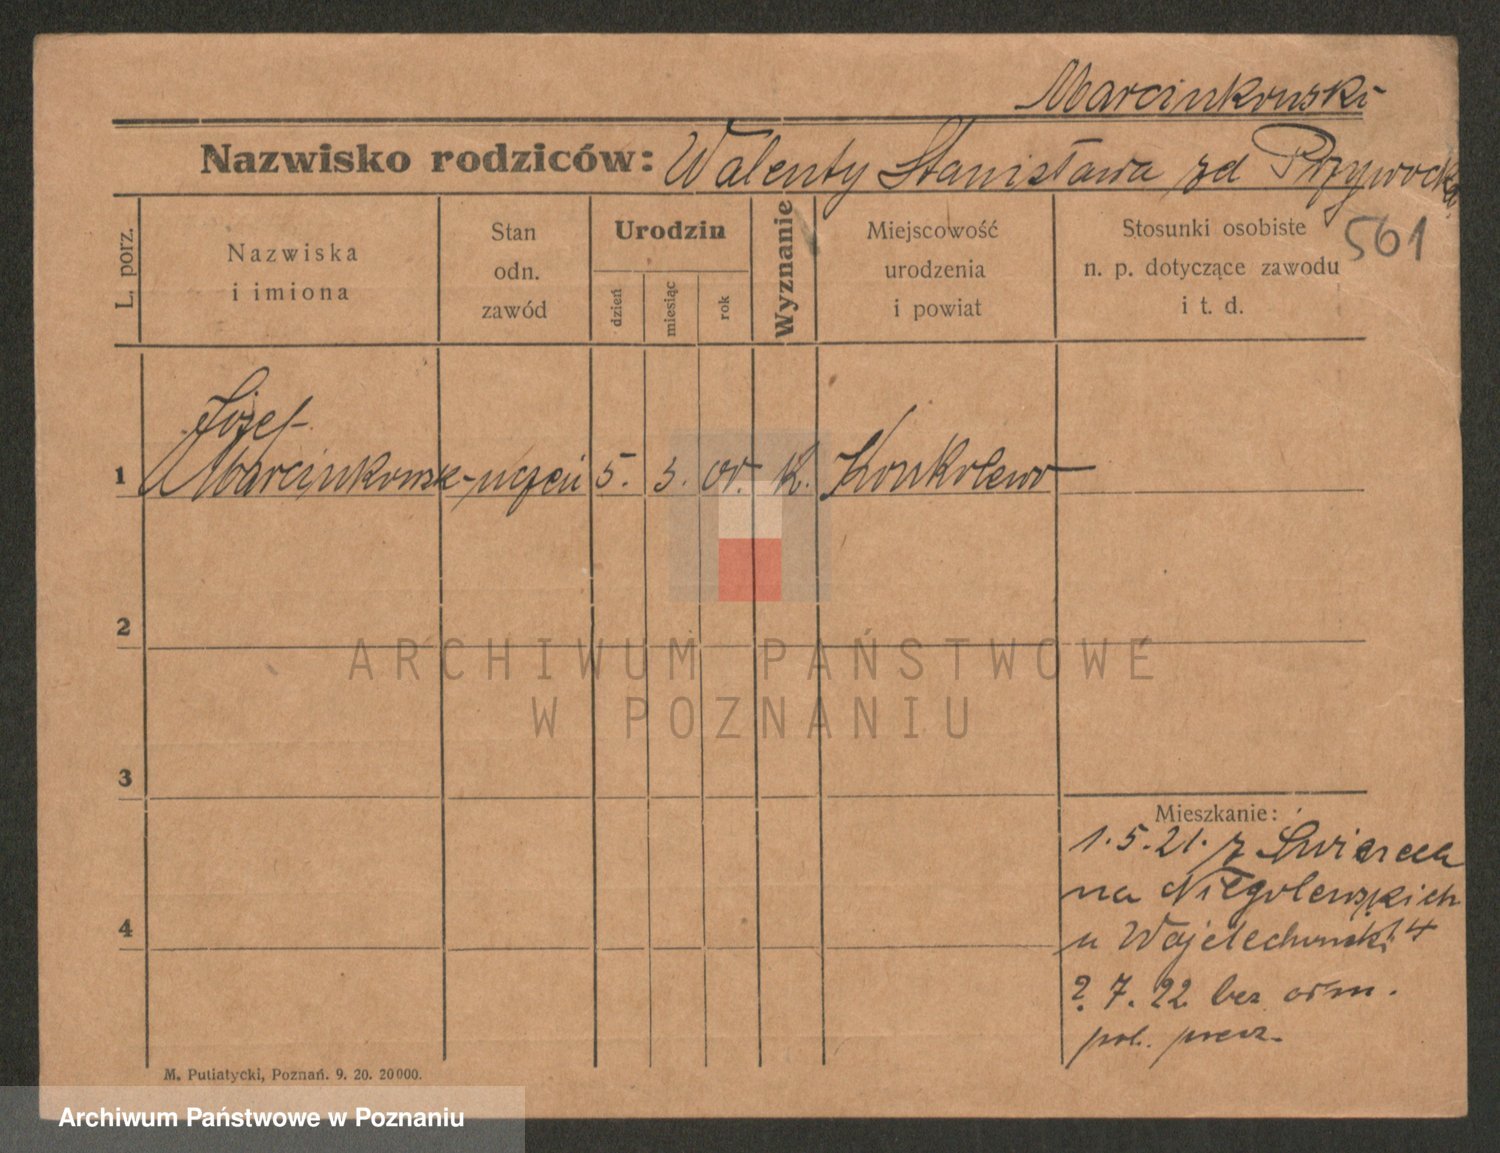 Marcinkowski
Nazwisko rodziców: Walenty Stanisława zd Przywocka
561
L. porz.
Nazwiska
i imiona
Stan
odn.
zawód
Urodzin
dzień
miesiąc
rok
Wyznanie
Miejscowość
urodzenia
i powiat
Stosunki osobiste
n. p. dotyczące zawodu
i t. d.
Józef
1 Marcinkowsk uczeń 5. 3. K. Konkolewo
2
ARCHIWUM PAŃSTWOWE
W POZNANIU
3
Mieszkanie:
1.5.21. z
na Niegolewskich
4
u Wojciechowski 14
? 7. 22 bez
pol.
M. Putiatycki, Poznań. 9. 20. 20000.
Archiwum Państwowe w Poznaniu